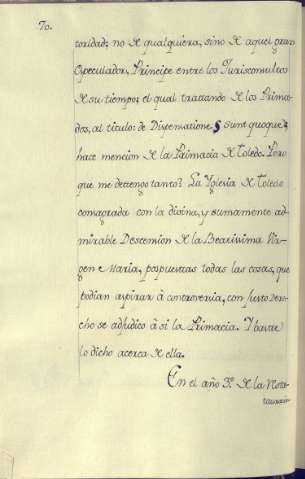 70.
toridad; no de qualquiera, sino de aquel gran
Especulador, Principe entre los Jurisconsultos
de su tiempo; el qual trattando de los Prima-
dos, al titulo: de Dispensatione § sunt quoque;
hace mencion de la Primacia de Toledo. Pero
que me dettengo tanto? La Yglesia de Toledo
consagrada con la divina, y sumamente ad-
mirable Descension de la Beatissima Vir-
gen Maria, pospuestas todas las cosas, que
podian aspirar à controversia, con justo dere-
cho se adjudicó à si la Primacia. Y bastte
lo dicho acerca de ella.
En el año 3º. de la